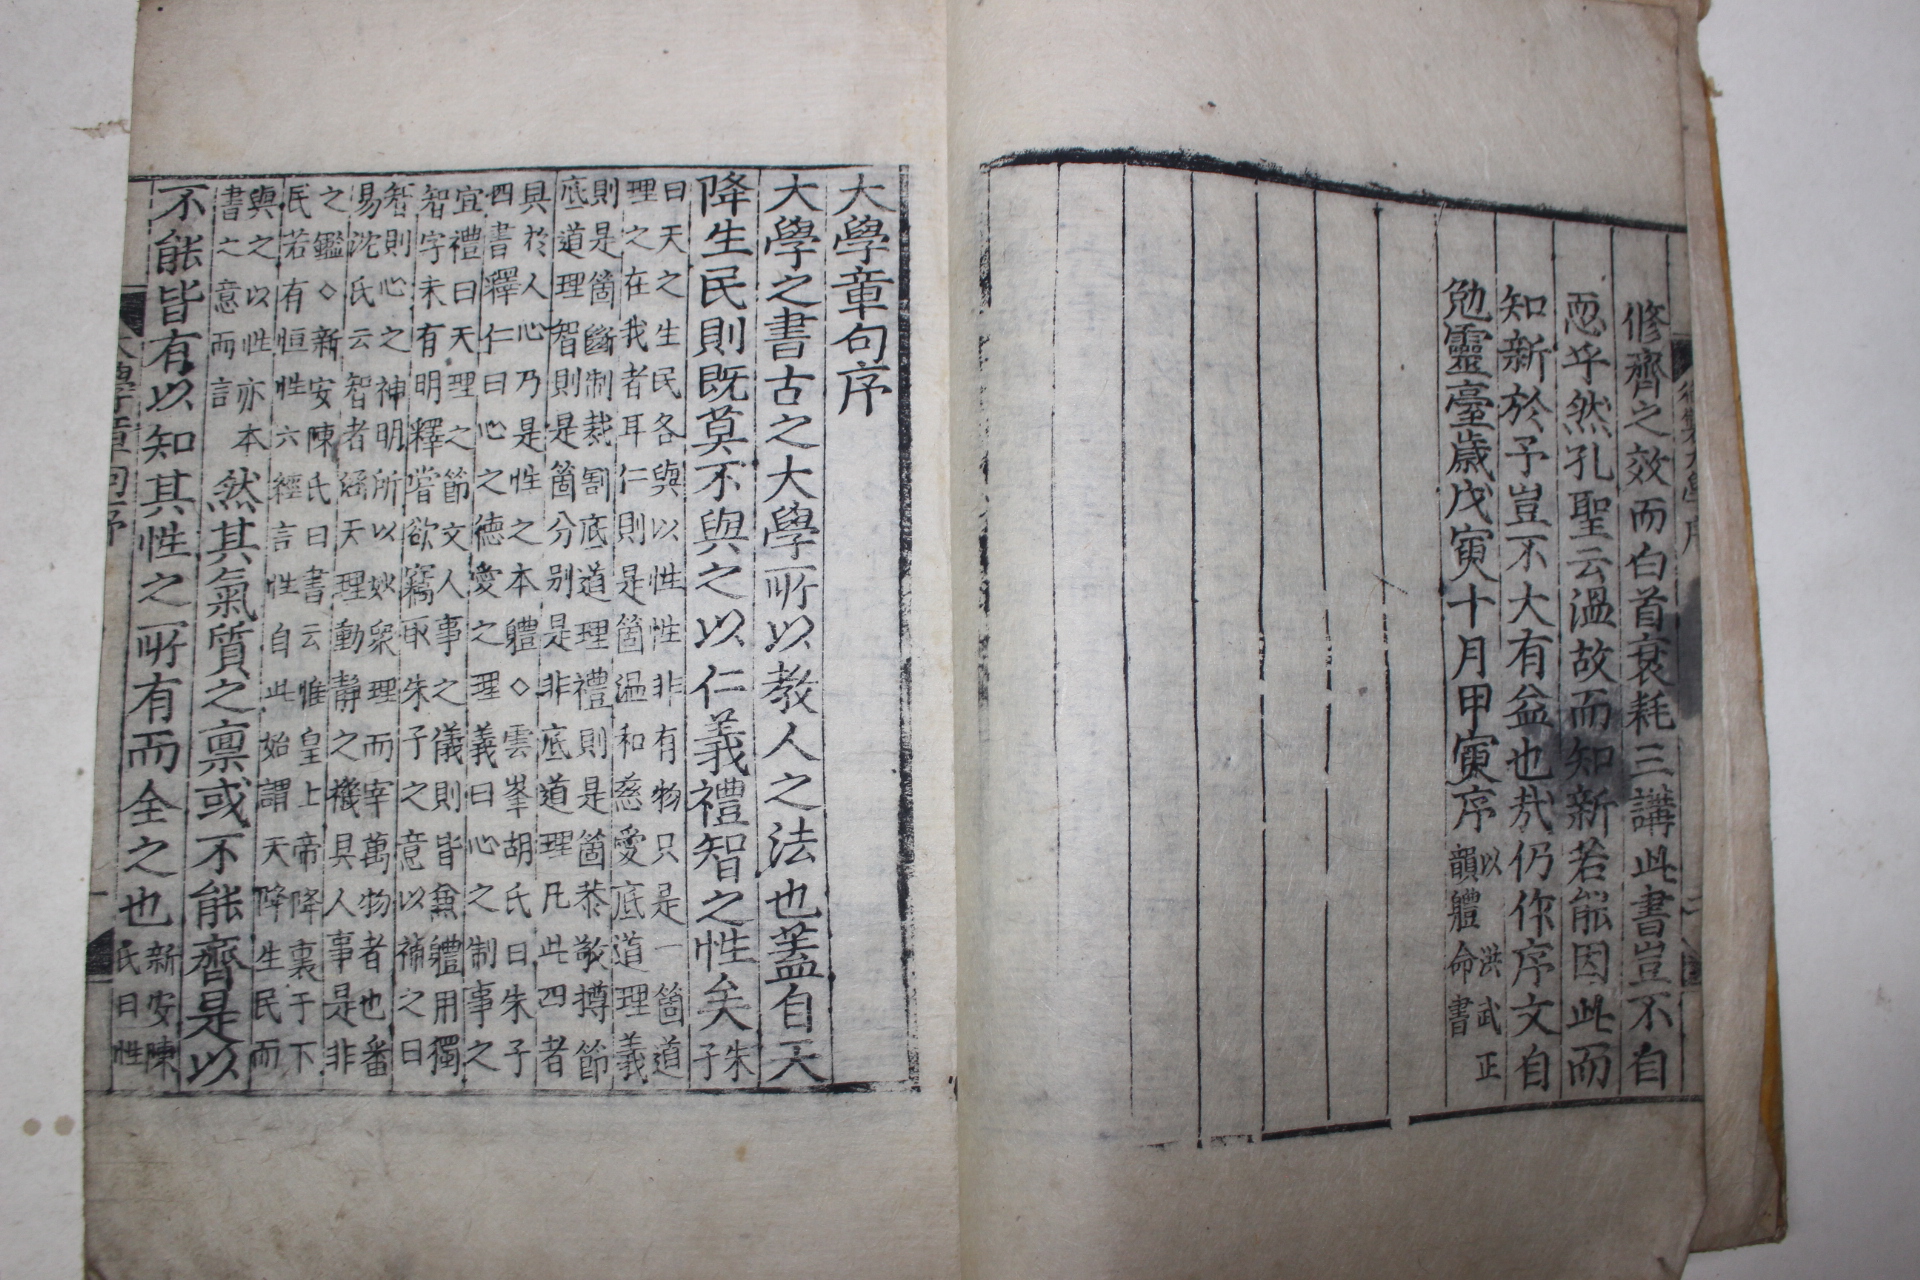 修齊之效而白首衰耗三講此書豈不自
恧乎然孔聖云溫故而知新若能因此而
知新於予豈不大有益也哉仍作序文自
勉靈臺歲戊寅十月甲寅序
以洪武正
韻體命書
大學章句序
大學之書古之大學所以教人之法也蓋自天
降生民則既莫不與之以仁義禮智之性矣
朱
子
曰天之生民各與以性性非有物只是一箇道
理之在我者耳仁則是箇溫和慈愛底道理義
則是箇斷制裁割底道理禮則是箇恭敬撙節
底道理智則是箇分別是非底道理凡此四者
具於人心乃是性之本體◇雲峯胡氏曰朱子
四書釋仁曰心之德愛之理義曰心之制事之
宜禮曰天理之節文人事之儀則皆兼體用獨
智字未有明釋嘗欲竊取朱子之意以補之曰
智則心之神明所以妙衆理而宰萬物者也番
易沈氏云智者涵天理動靜之機具人事是非
之鑑◇新安陳氏曰書云惟皇上帝降衷于下
民若有恒性六經言性自此始謂天降生民而
與之以性亦本
書之意而言
然其氣質之稟或不能齊是以
不能皆有以知其性之所有而全之也
新安陳
氏曰性
大學章句序
一